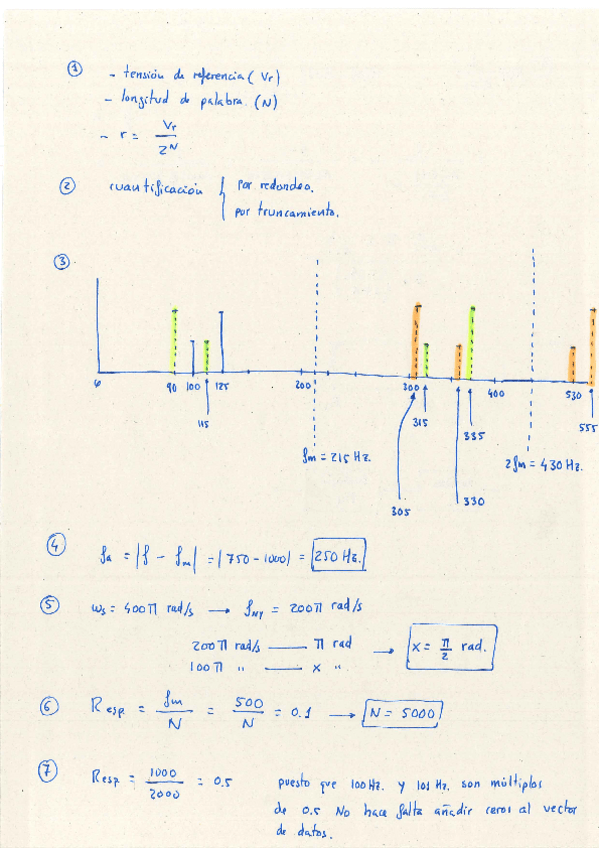 ①
- tensión de referencia (Vr)
- longitud de palabra. (N)
- r = Vr / 2^N
②
cuantificación { por redondeo.
por truncamiento.
③
0 90 100 125 200 300 400 530
115 315 335 555
fm = 215 Hz. 2fm = 430 Hz.
305 330
④
fa = |f - fm| = |750 - 1000| = 250 Hz.
⑤
ωs = 400π rad/s → fNY = 200π rad/s
200π rad/s —— π rad → x = π/2 rad.
100π " —— x ".
⑥
Resp. = fm / N = 500 / N = 0.1 → N = 5000
⑦
Resp = 1000 / 2000 = 0.5 puesto que 100 Hz. y 101 Hz. son múltiplos
de 0.5 No hace falta añadir ceros al vector
de datos.